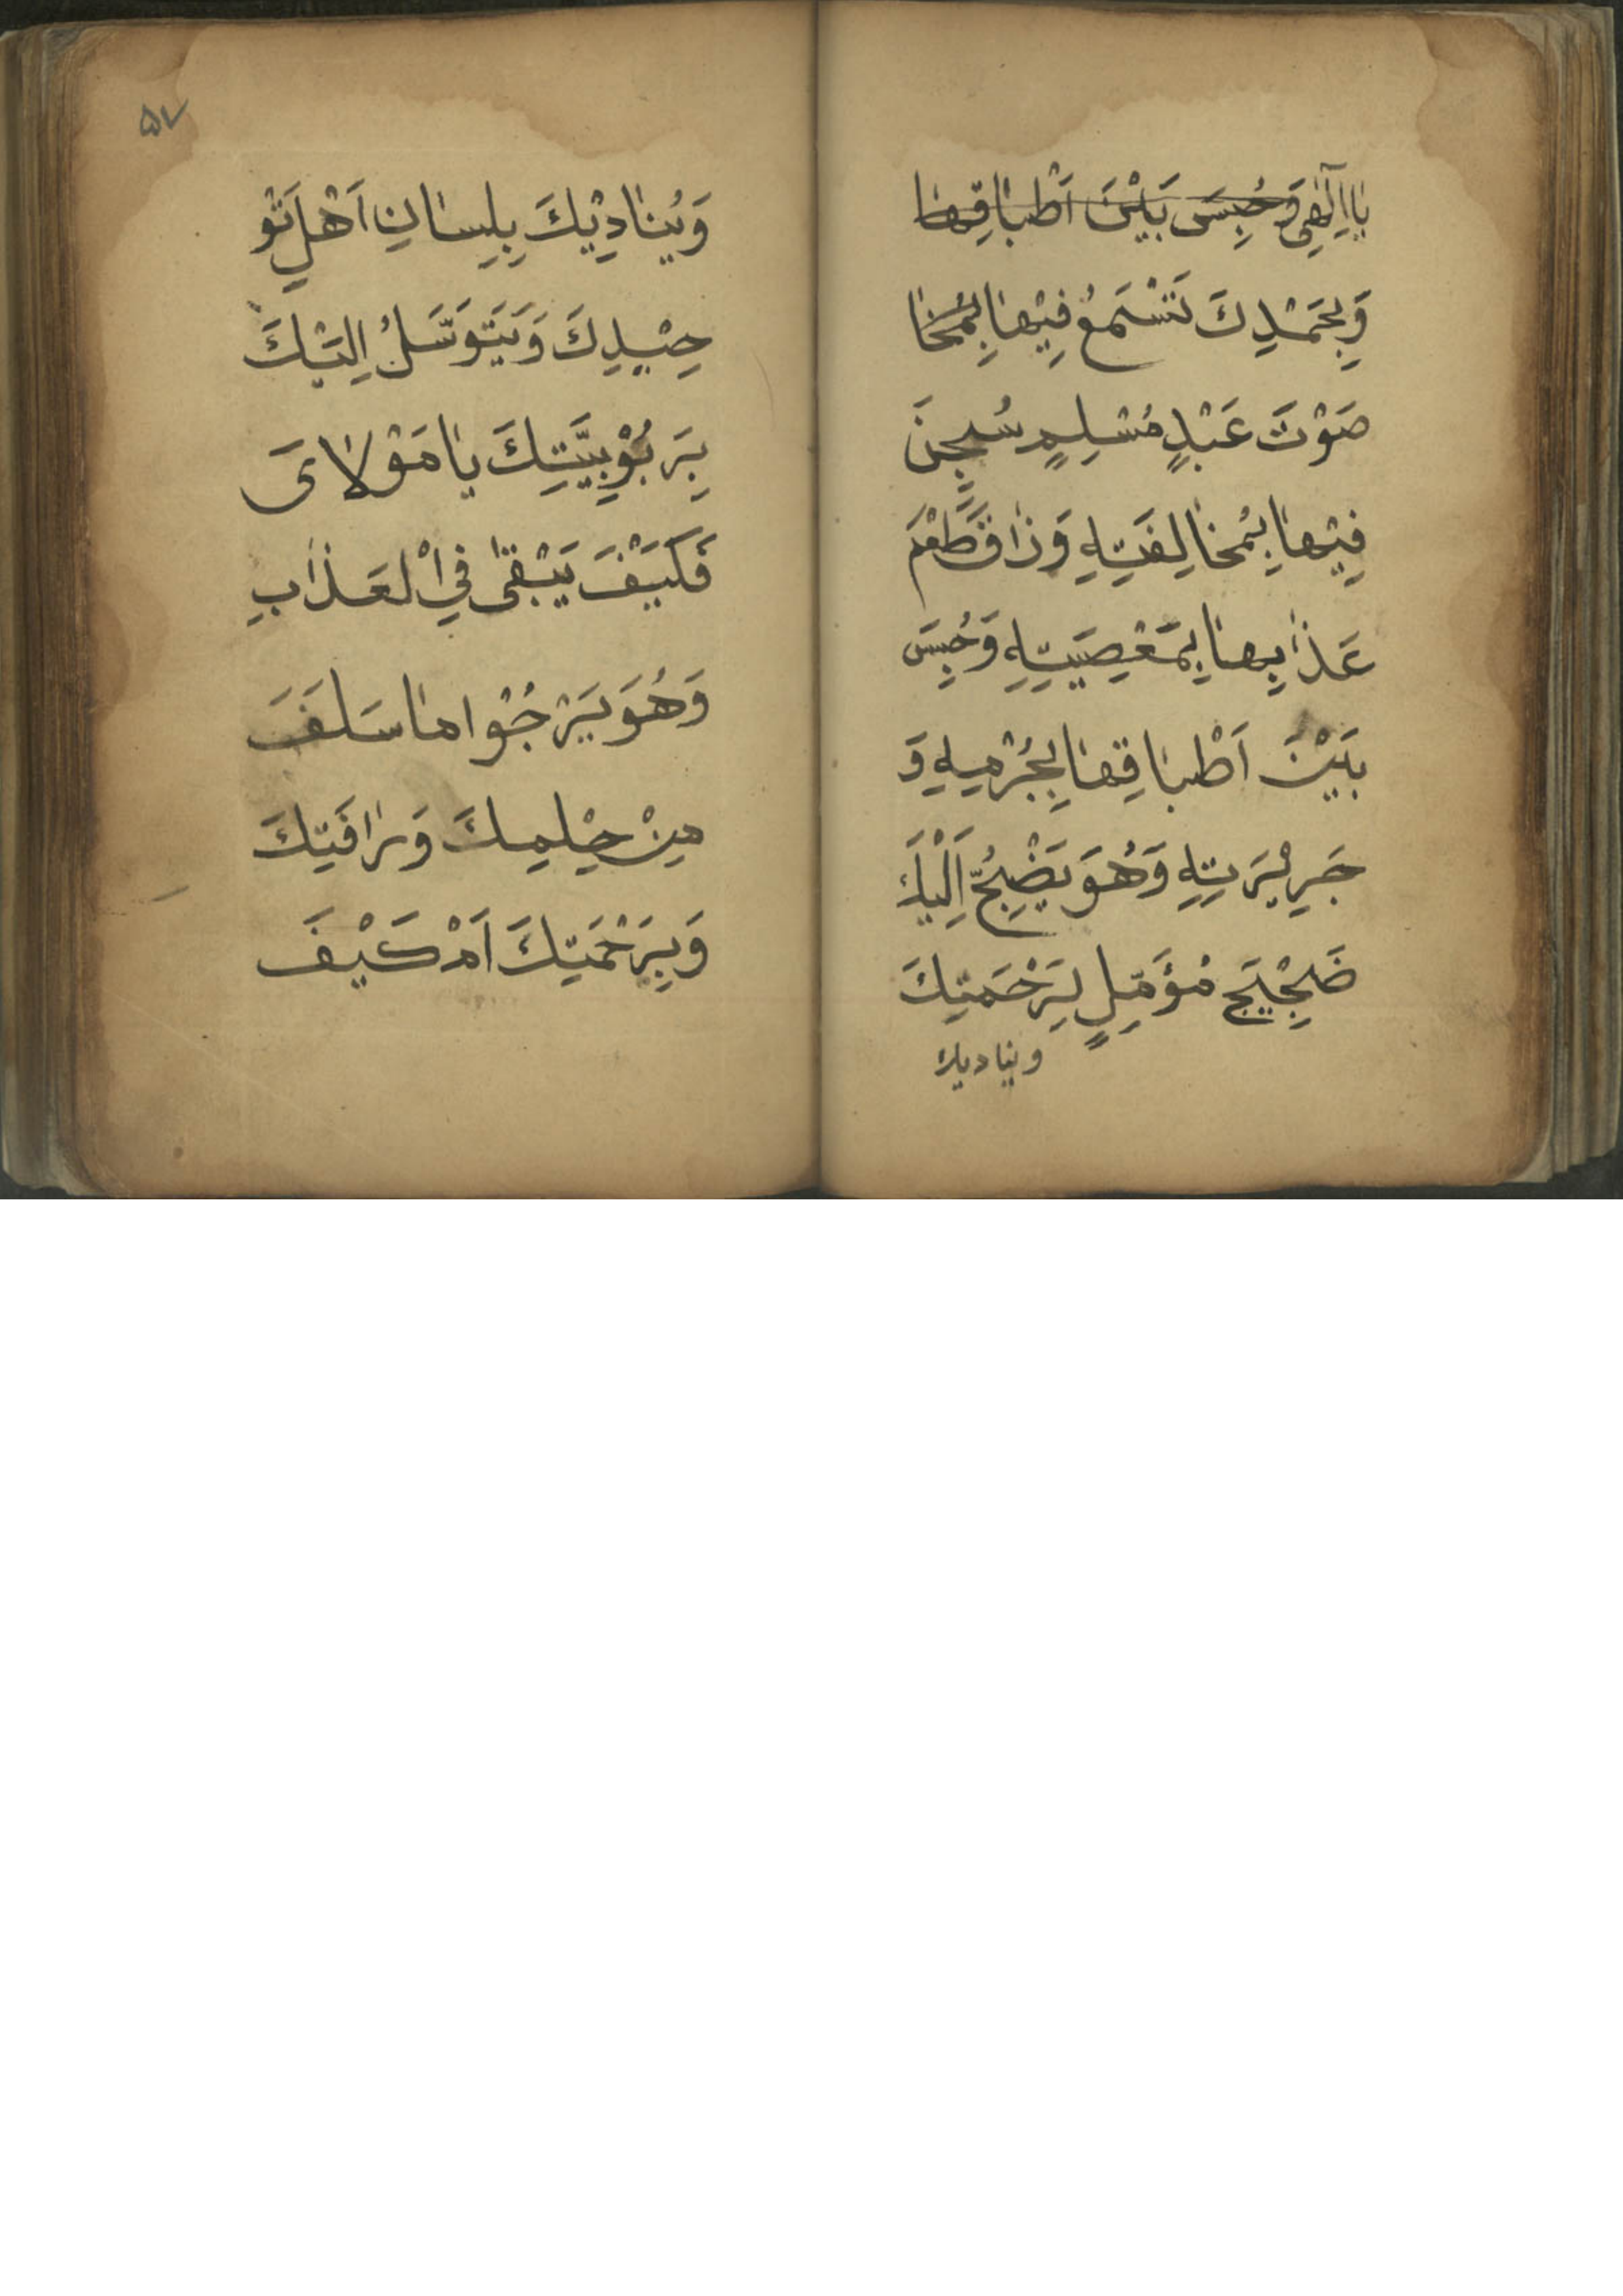 يٰا اِلٰهِى وَحُبِسَ بَيْنَ اَطْبٰاقِهٰا
وَبِحَمْدِكَ تَسْتَمِعُ فِيْهٰا بِمُخٰا
صَوْتَ عَبْدٍ مُسْلِمٍ سُجِنَ
فِيْهٰا بِمُخٰالِفَتِهِ وَذٰاقَ طَعْمَ
عَذٰابِهٰا بِمَعْصِيَتِهِ وَحُبِسَ
بَيْنَ اَطْبٰاقِهٰا بِجُرْمِهِ وَ
جَرِيْرَتِهِ وَهُوَ يَضِجُّ اِلَيْكَ
ضَجِيْجَ مُؤَمِّلٍ لِرَحْمَتِكَ
ويناديك
۵۷
وَيُنٰادِيْكَ بِلِسٰانِ اَهْلِ تَوْ
حِيْدِكَ وَيَتَوَسَّلُ اِلَيْكَ
بِرَبُوْبِيَّتِكَ يٰا مَوْلاٰىَ
فَكَيْفَ يَبْقىٰ فِي الْعَذٰابِ
وَهُوَ يَرْجُوْا مٰا سَلَفَ
مِنْ حِلْمِكَ وَرَافَتِكَ
وَبِرَحْمَتِكَ اَمْ كَيْفَ